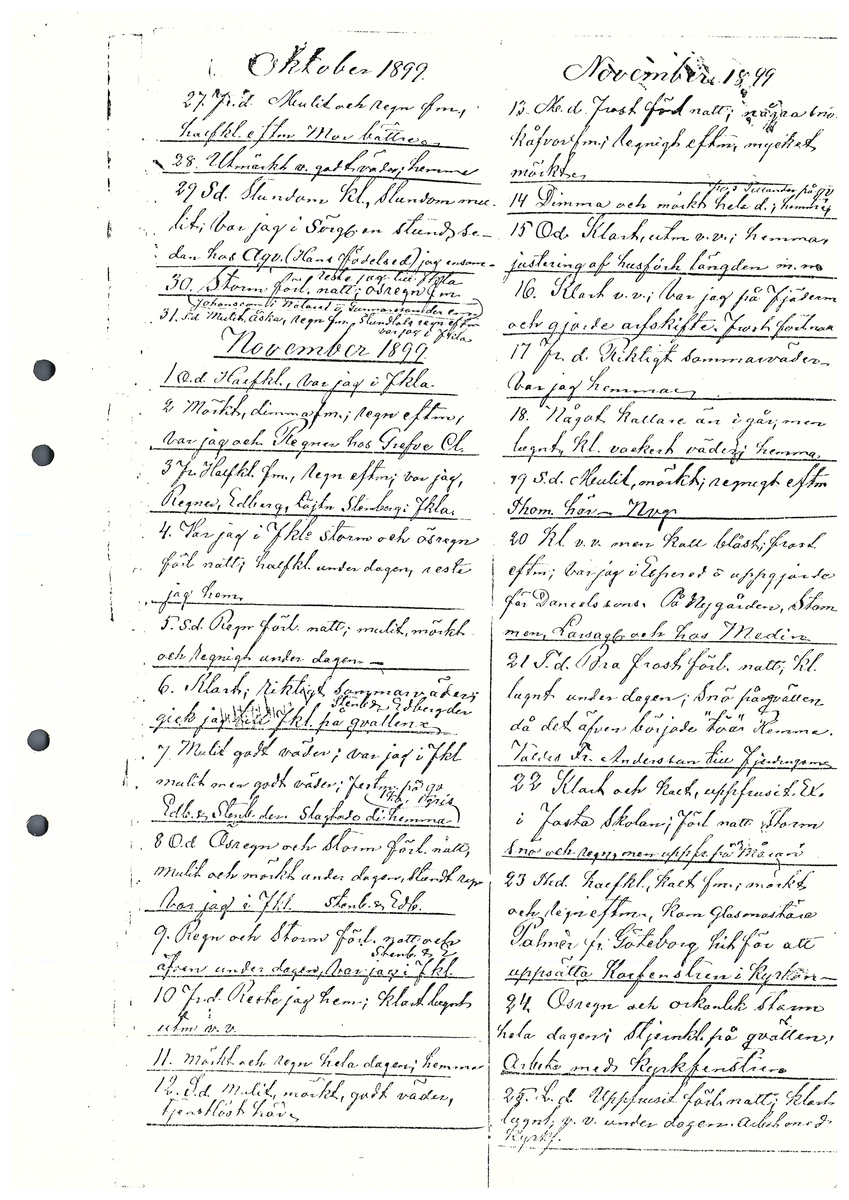 Oktober 1899.
27. Fr.d. Mulit och regn fm.,
halfkl. eftm Mor bättre
28. Utmärkt v. godt väder; hemma
29 Sd. Stundom kl., stundom mu-
lit; var jag i en stund, se-
dan hos Agv. (Hans födelsed) jag ensam
reste jag till Fkla
30. Storm förl. natt; ösregn fm.
Johansson i
31. Sd Mulit, åska, regn fm., regn eftm
var jag i Fkla
November 1899.
1 O.d. Halfkl., var jag i Fkla.
2 Mörkt, dimma fm.; regn eftm;
var jag och Regner hos Grefve Cl.
3 Fr. Halfkl. fm., regn eftm; var jag,
Regner, Edberg, Löjtn Stenberg i Fkla.
4. Var jag i Fkla storm och ösregn
förl natt; halfkl. under dagen, reste
jag hem.
5. S.d. Regn förl. natt; mulit, mörkt
och regnigt under dagen —
6. Klart; riktigt sommarväder;
Stenb. & Edberg der
gick jag till Fkl. på qvällen
7 Mulit godt väder; var jag i Fkl
mulit men godt väder;
Edb. & Stenb. der. Slagtade di hemma
8 O.d Ösregn och storm förl. natt,
mulit och mörkt under dagen, regn
Var jag i Fkl. Stenb. & Edb.
9. Regn och storm förl. natt och
Stenb. & E
äfven under dagen, var jag i Fkl.
10 Fr.d. Reste jag hem; klart lugnt
utm v. v.
11. Mörkt och regn hela dagen; hemma
12. S.d Mulit, mörkt, godt väder,
tjenstlöst här.
November 1899
13. M.d. Frost förl natt; några snö
kåfvor fm; regnigt eftm, mycket
mörkt
Hos på qv
14 Dimma och mörkt hela d.; hemma
15 Od Klart, utm v.v.; hemma,
justering af husförh längden m.m
16. Klart v.v.; var jag på
och gjorde arfskifte. Frost förl natt
17 Fr. d. Riktigt sommarväder
Var jag hemma
18. Något kallare än i går, men
lugnt, kl. vackert väder; hemma
19 S.d. Mulit, mörkt; regnigt eftm
Thom. här —
20 Kl. v.v. men kall blåst; frost
eftm; var jag i Espered o uppgjorde
för Danielssons. På Nygården,
och hos Medin
21 T.d. Bra frost förl. natt; kl.
lugnt under dagen; snö på qvällen
då det äfven började töa Hemma.
Valdes Fr. Andersson till
22 Klart och kalt, uppfrusit. Ex.
i Fasta skolan; Förl natt storm
snö och regn, men uppfr. på
23 Hd. halfkl., kalt fm; mörkt
och regn eftm., kom Glasmästare
Palmèr fr. Göteborg hit för att
uppsätta Korfenstren i Kyrkan —
24 Ösregn och orkanlik storm
hela dagen; stjernkl. på qvällen;
Arbete med kyrkfenstren
25. L.d Uppfrusit förl. natt; klart
lugnt; v. v. under dagen. Arbete med
kyrkf.